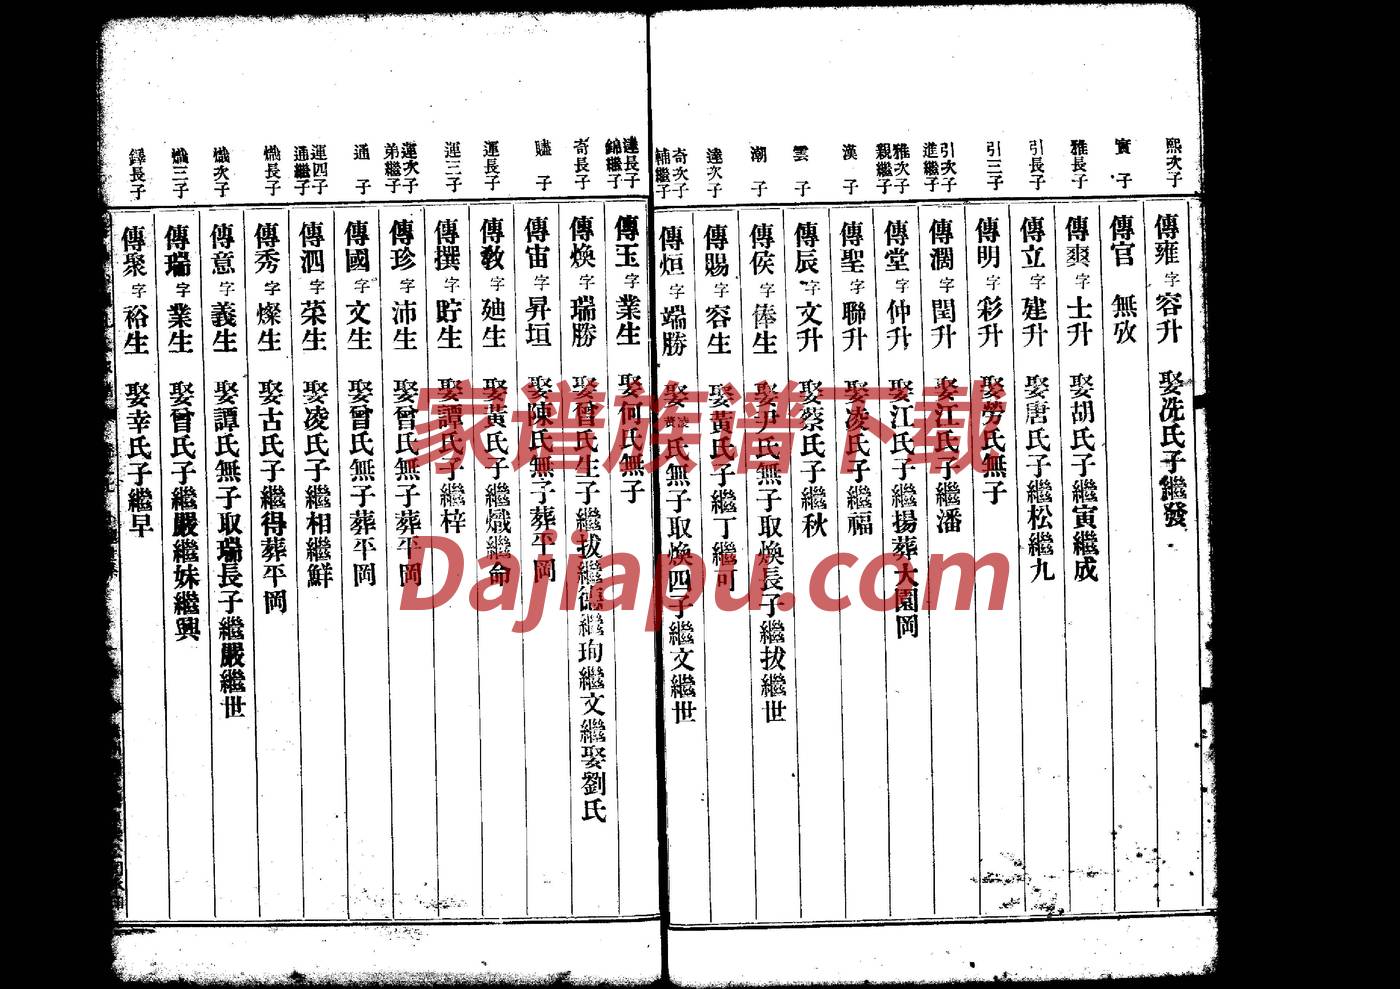 熙次子 傳雍 字容升 娶冼氏子繼發
實子 傳官 無攷
雅長子 傳爽 字士升 娶胡氏子繼寅繼成
引長子 傳立 字建升 娶唐氏子繼松繼九
引三子 傳明 字彩升 娶勞氏無子
引次子進繼子 傳濶 字閏升 娶江氏子繼潘
雅次子親繼子 傳堂 字仲升 娶江氏子繼揚葬大園岡
漢子 傳聖 字聯升 娶凌氏子繼福
雲子 傳辰 字文升 娶蔡氏子繼秋
潮子 傳侯 字俸生 娶尹氏無子取煥長子繼拔繼世
達次子 傳賜 字容生 娶黃氏子繼丁繼可
奇次子輔繼子 傳烜 字端勝 娶凌黃氏無子取煥四子繼文繼世
達長子錦繼子 傳玉 字業生 娶何氏無子
奇長子 傳煥 字瑞勝 娶曾氏生子繼拔繼德繼珣繼文繼娶劉氏
子 傳宙 字昇垣 娶陳氏無子葬平岡
運長子 傳教 字廸生 娶黃氏子繼熾繼命
運三子 傳撰 字貯生 娶譚氏子繼梓
運次子弟繼子 傳珍 字沛生 娶曾氏無子葬平岡
通子 傳國 字文生 娶曾氏無子葬平岡
運四子通繼子 傳泗 字荣生 娶凌氏子繼相繼鮮
熾長子 傳秀 字燦生 娶古氏子繼得葬平岡
熾次子 傳意 字義生 娶譚氏無子取瑞長子繼嚴繼世
熾三子 傳瑞 字業生 娶曾氏子繼嚴繼妹繼興
鐸長子 傳聚 字裕生 娶幸氏子繼早
家谱族谱下载
Dajiapu.com